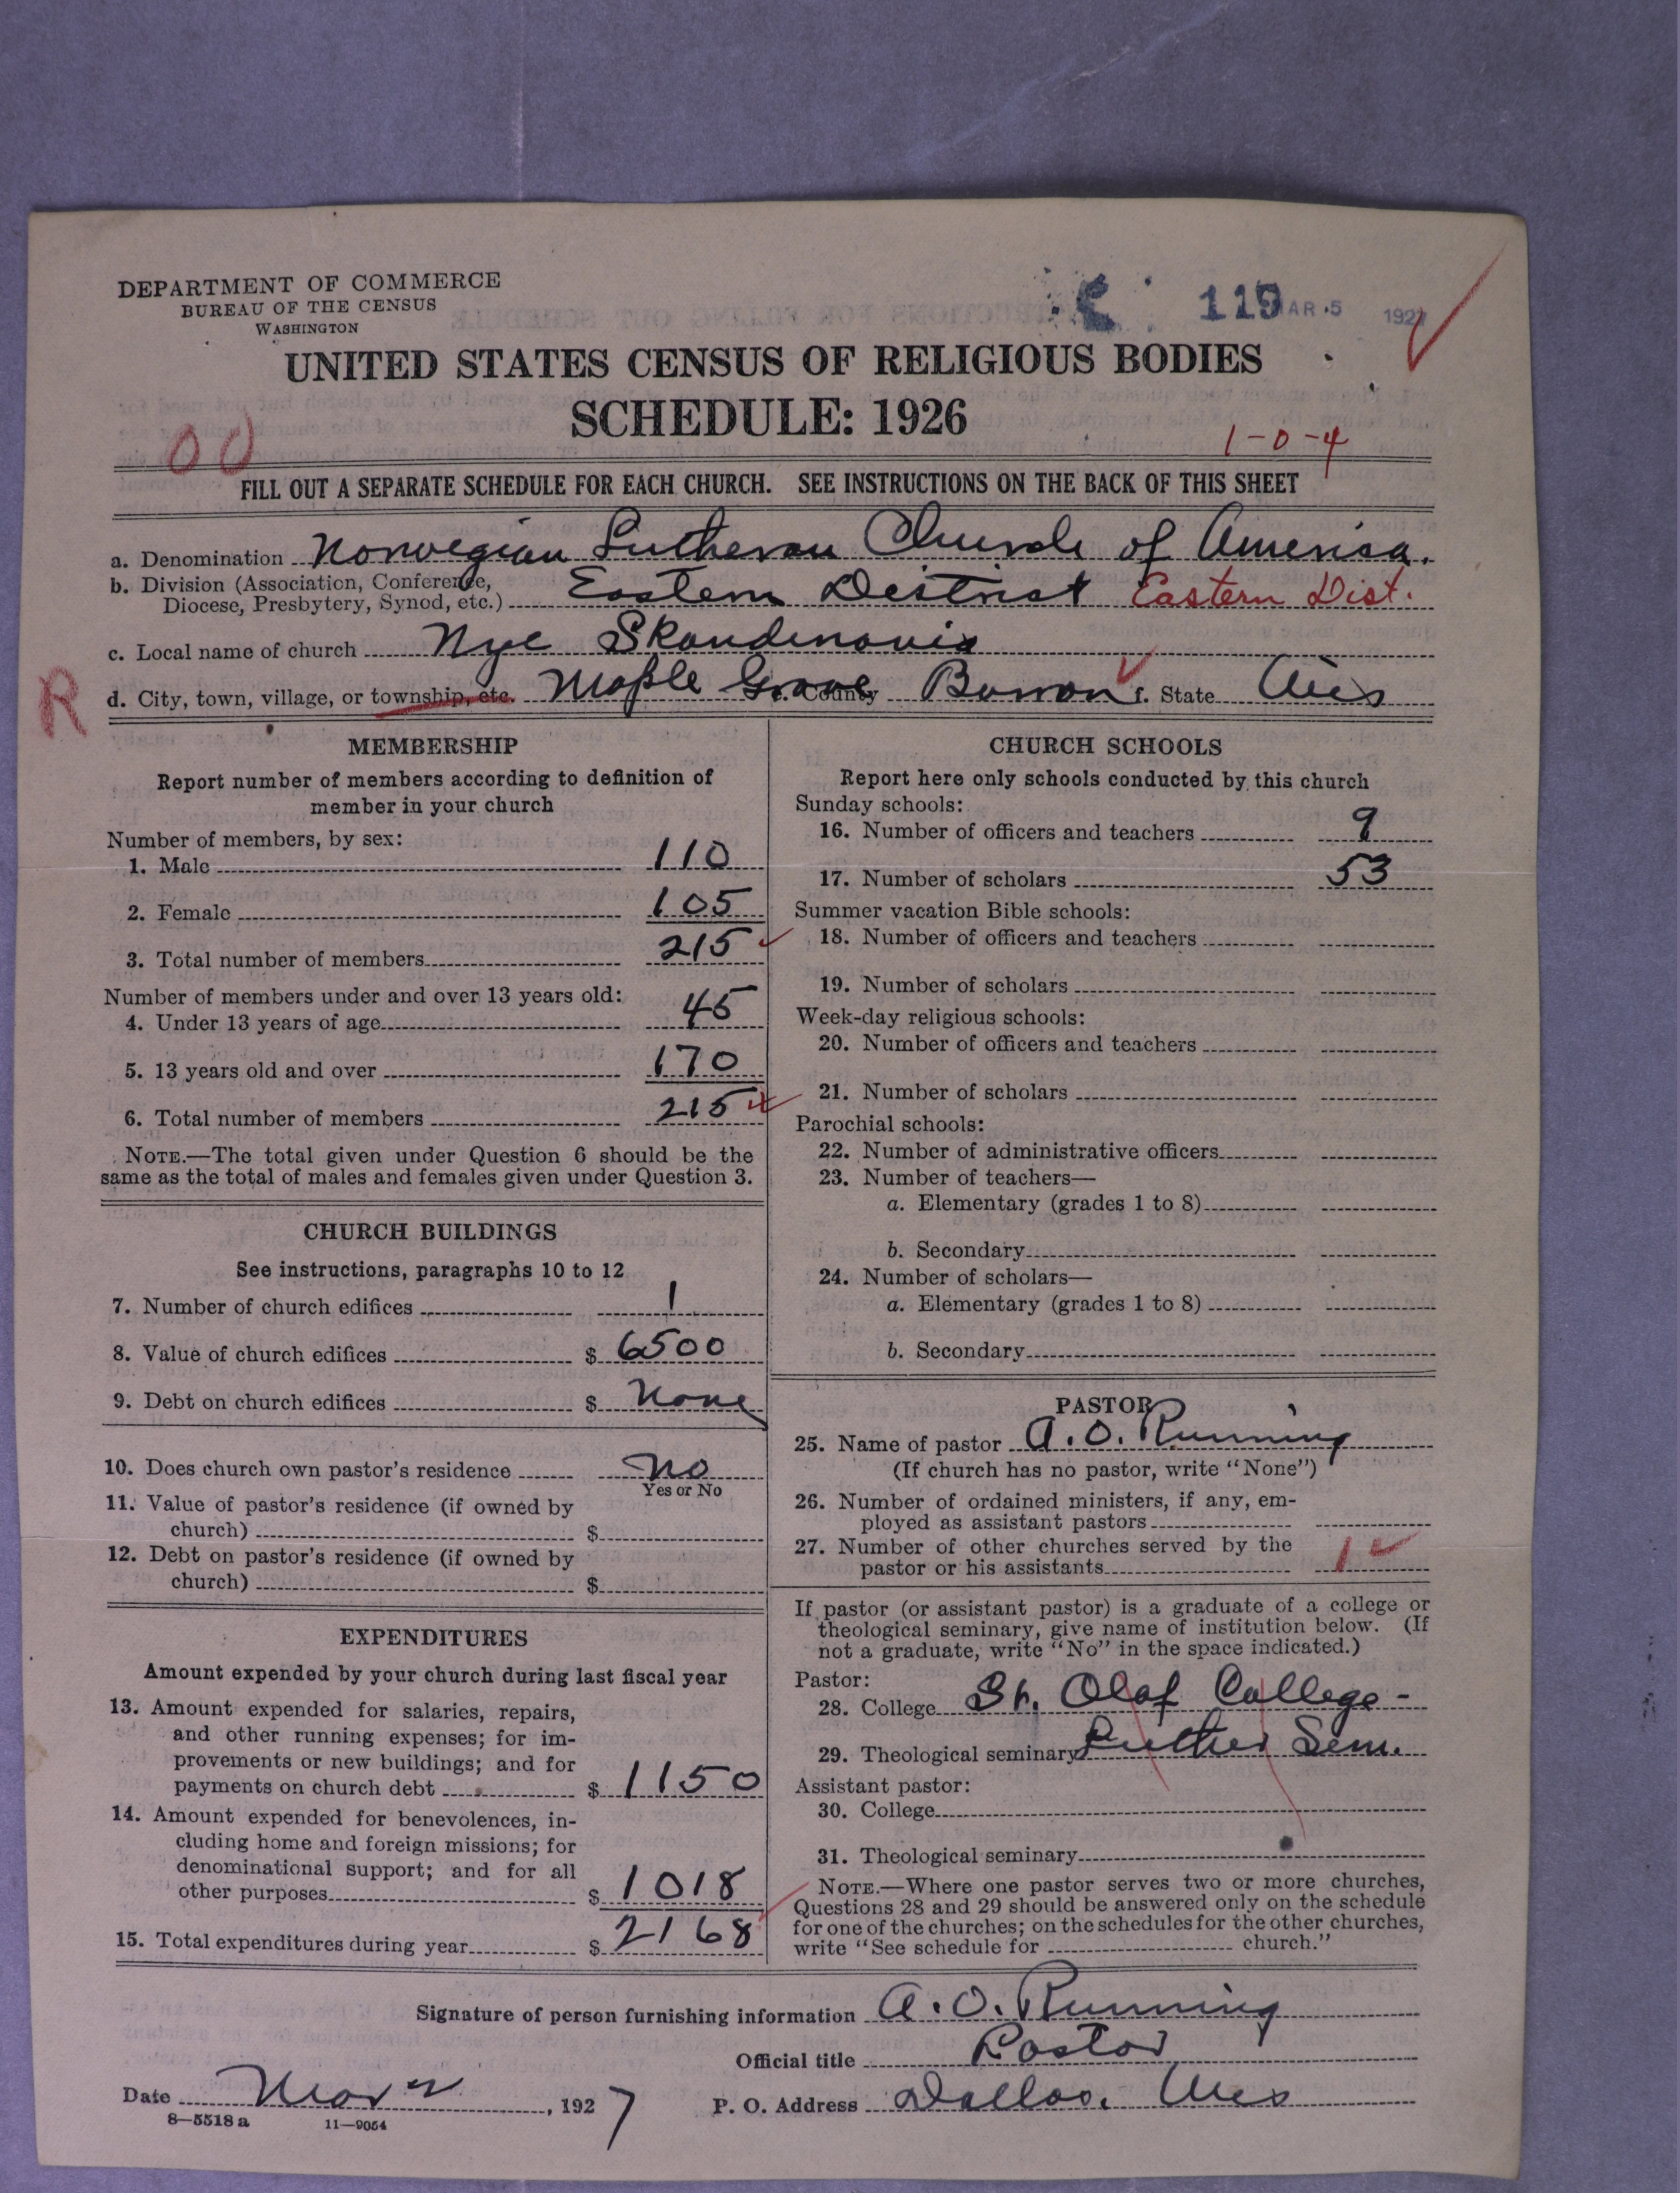 DEPARTMENT OF COMMERCE
BUREAU OF THE CENSUS
WASHINGTON
119 MAR 5 1927
UNITED STATES CENSUS OF RELIGIOUS BODIES
SCHEDULE: 1926
00
1-0-4
FILL OUT A SEPARATE SCHEDULE FOR EACH CHURCH. SEE INSTRUCTIONS ON THE BACK OF THIS SHEET
a. Denomination Norwegian Lutheran Church of America.
b. Division (Association, Conference,
Diocese, Presbytery, Synod, etc.) Eastern District Eastern Dist.
c. Local name of church Nye Skandinavia
R d. City, town, village, or township, etc. Maple Grove e. County Barron f. State Wis
MEMBERSHIP
Report number of members according to definition of
member in your church
Number of members, by sex:
1. Male 110
2. Female 105
3. Total number of members 215
Number of members under and over 13 years old:
4. Under 13 years of age 45
5. 13 years old and over 170
6. Total number of members 215
NOTE.—The total given under Question 6 should be the
same as the total of males and females given under Question 3.
CHURCH BUILDINGS
See instructions, paragraphs 10 to 12
7. Number of church edifices 1
8. Value of church edifices $ 6500
9. Debt on church edifices $ None
10. Does church own pastor's residence No
Yes or No
11. Value of pastor's residence (if owned by
church) $
12. Debt on pastor's residence (if owned by
church) $
EXPENDITURES
Amount expended by your church during last fiscal year
13. Amount expended for salaries, repairs,
and other running expenses; for im-
provements or new buildings; and for
payments on church debt $ 1150
14. Amount expended for benevolences, in-
cluding home and foreign missions; for
denominational support; and for all
other purposes $ 1018
15. Total expenditures during year $ 2168
CHURCH SCHOOLS
Report here only schools conducted by this church
Sunday schools:
16. Number of officers and teachers 9
17. Number of scholars 53
Summer vacation Bible schools:
18. Number of officers and teachers
19. Number of scholars
Week-day religious schools:
20. Number of officers and teachers
21. Number of scholars
Parochial schools:
22. Number of administrative officers
23. Number of teachers—
a. Elementary (grades 1 to 8)
b. Secondary
24. Number of scholars—
a. Elementary (grades 1 to 8)
b. Secondary
PASTOR
25. Name of pastor A. O. Running
(If church has no pastor, write "None")
26. Number of ordained ministers, if any, em-
ployed as assistant pastors
27. Number of other churches served by the
pastor or his assistants 1
If pastor (or assistant pastor) is a graduate of a college or
theological seminary, give name of institution below. (If
not a graduate, write "No" in the space indicated.)
Pastor:
28. College St. Olaf College -
29. Theological seminary Luther Sem.
Assistant pastor:
30. College
31. Theological seminary
NOTE.—Where one pastor serves two or more churches,
Questions 28 and 29 should be answered only on the schedule
for one of the churches; on the schedules for the other churches,
write "See schedule for church."
Signature of person furnishing information A. O. Running
Official title Pastor
Date Mar 2, 1927
P. O. Address Dallas, Wis
8—5518 a 11—9054